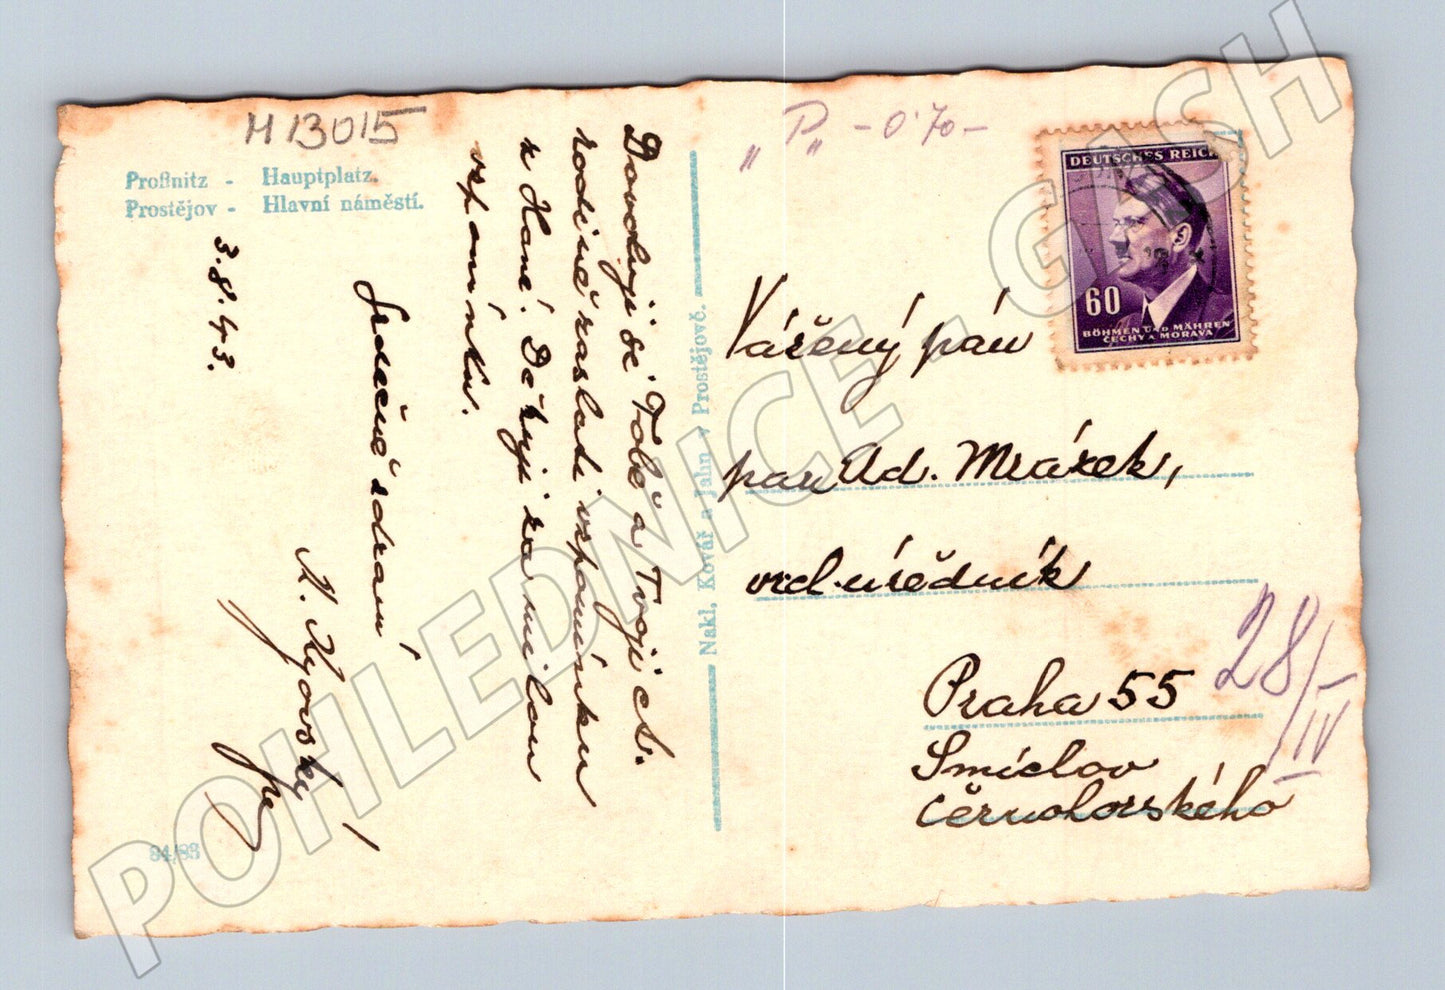 M 13015
Proßnitz - Hauptplatz.
Prostějov - Hlavní náměstí.
3.8.43.
Dovoluji si Tobě a Tvoji ct.
rodině zaslati vzpomínku
z Hané. Děkuji za milou
vzpomínku.
Srdečné zdraví
Nakl. Kovář a Jahn v Prostějově.
"P" - 0'70 -
DEUTSCHES REICH
60
BÖHMEN UND MÄHREN
ČECHY A MORAVA
Vážený pán
pan Ad. Mrázek,
vrch. úředník
Praha 55
Smíchov
Černohorského
28/IV
94/83
POHLEDNICE - GASH